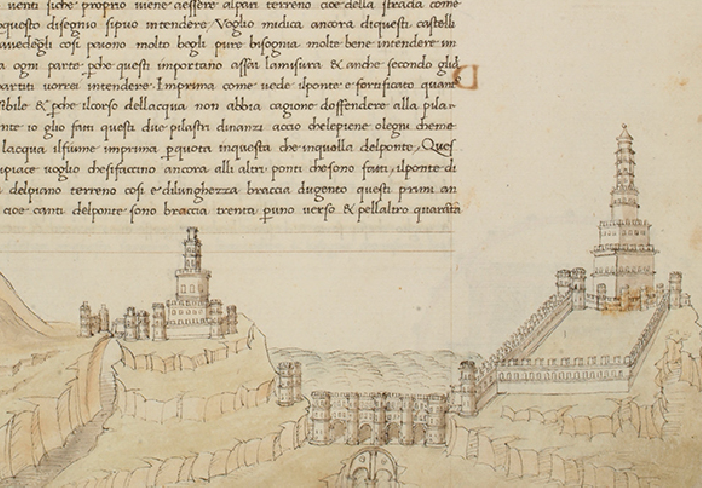 uenti siche proprio uiene aessere alpari terreno cioe della strada come
questo disegno sipuo intendere, Voglio midica ancora diquesti castelli
auedegli cosi paiono molto begli pure bisognia molto bene intendere in
a ogni parte pche questi importano assai lamisura & anche secondo gli
partiti uorrei intendere. Imprima come uede ilponte e fortificato quanto
sibile & pche ilcorso dellacqua non abbia cagione doffendere alla pilar
nte io glio fatti questi due pilastri dinanzi accio chelepiene olegni cheme
lacqua ilfiume imprima pquota inquesta che inquella delponte, Ques
piace uoglio chesifaccino ancora alli altri ponti chesono fatti, ilponte di
delpiano terreno cosi e dilunghezza braccia dugento questi primi an
cioe canti delponte sono braccia trenta puno uerso & pellaltro quarãta
D